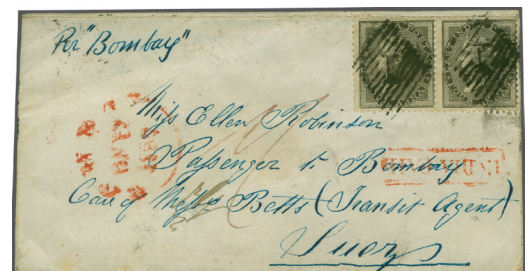 Per "Bombay"
Miss Ellen Robinson
Passenger to Bombay
Care of Messrs Betts (Transit Agent)
Suez